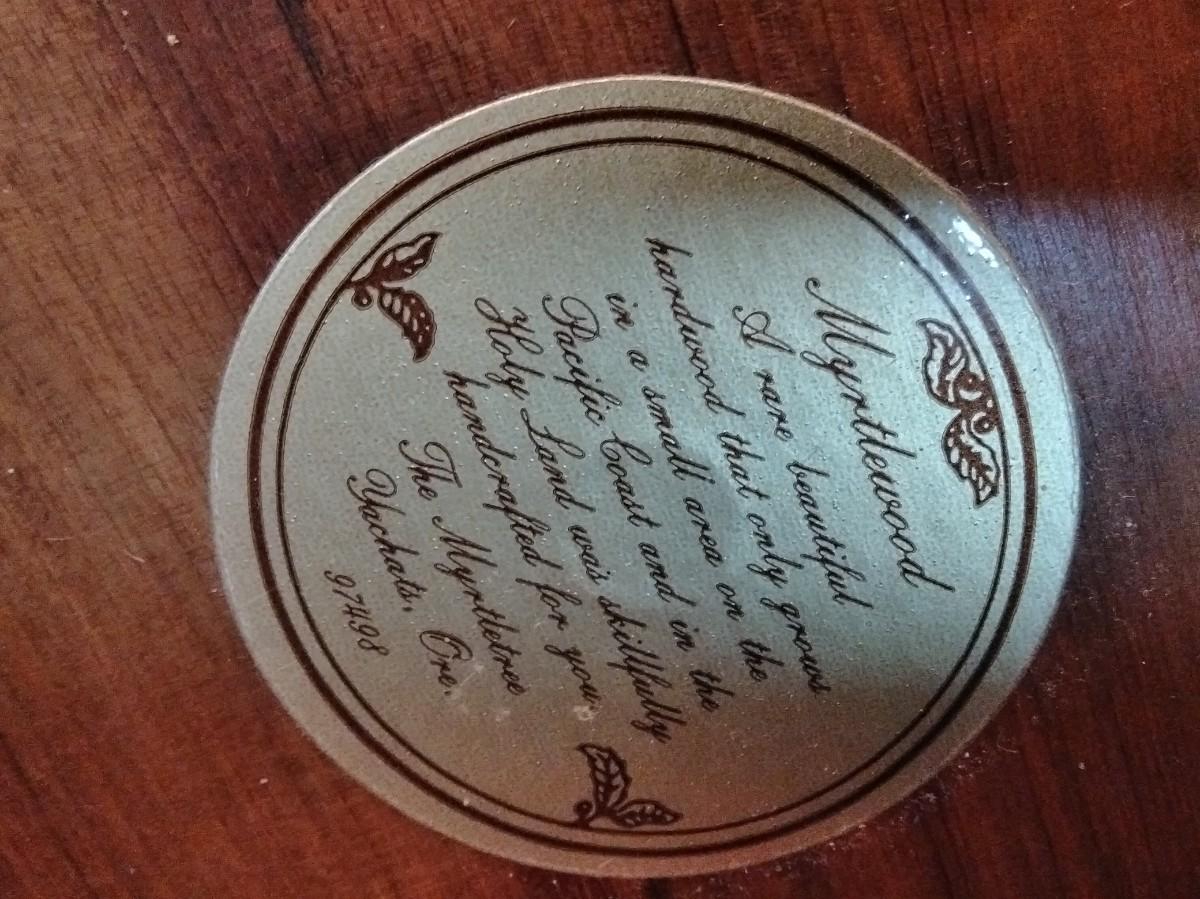 Myrtlewood
A rare beautiful
hardwood that only grows
in a small area on the
Pacific Coast and in the
Holy Land was skillfully
handcrafted for you
The Myrtletree
Yachats, Ore.
97498